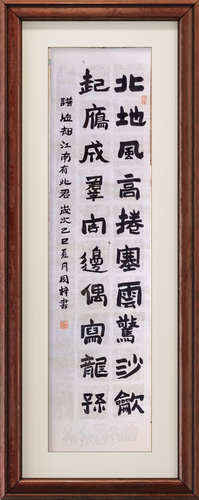 北地風高捲塞雲驚沙歘
起鴈成羣邊偶寫龍孫
譜知江南有此君 歲次乙巳夏月周梓書